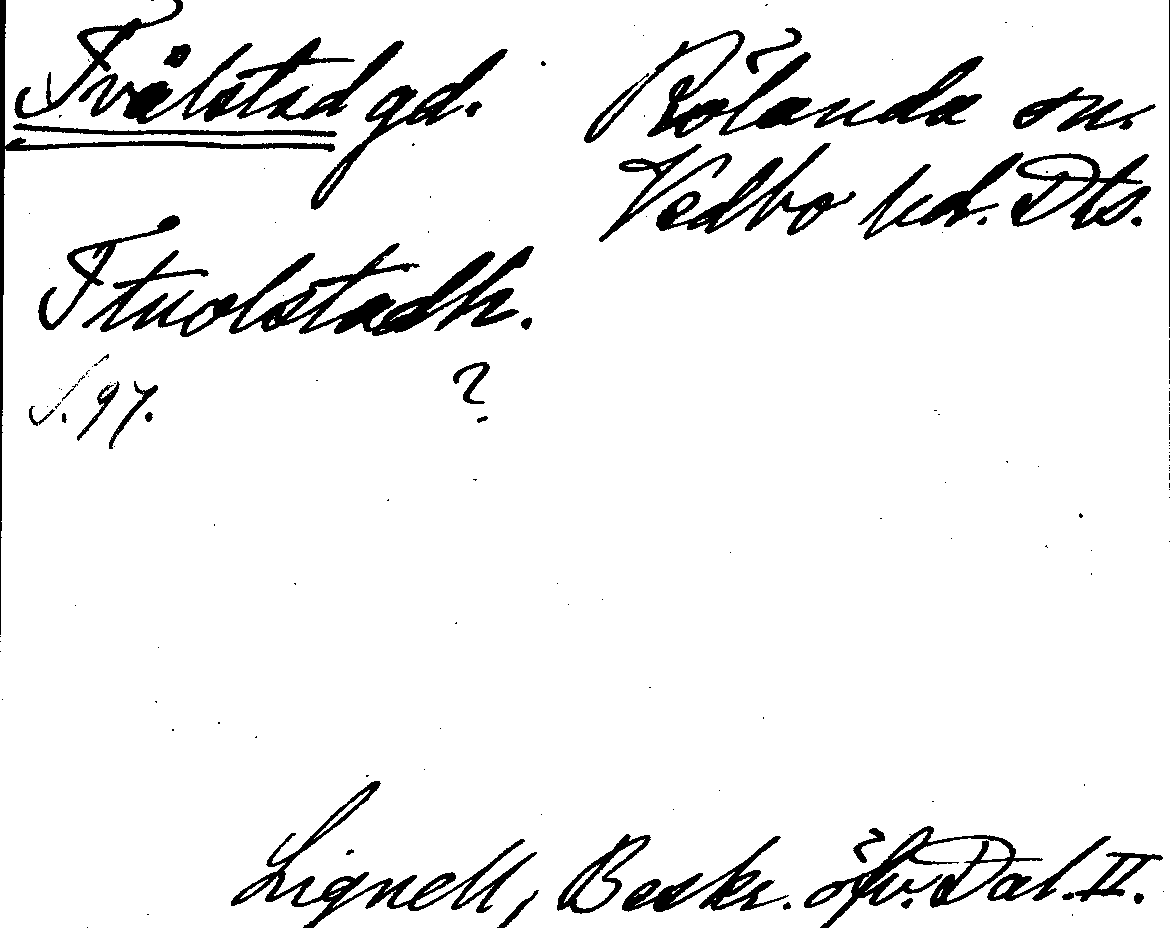 Tvålstad gd.
Rölanda sn.
Vedbo hd. Dls.
Ttuolstadh.
S. 97. ?
Lignell, Beskr. öfv. Dal. II.